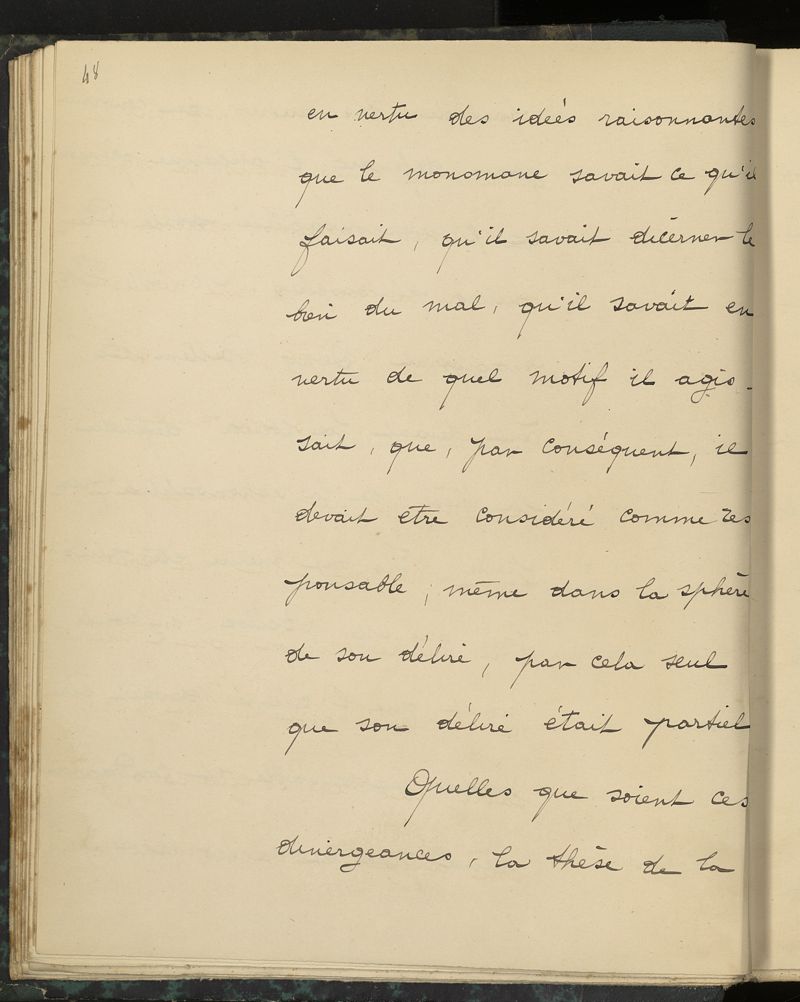 48
en vertu des idées raisonnantes
que le monomane savait ce qu'il
faisait, qu'il savait dicerner le
bien du mal, qu'il savait en
vertu de quel motif il agis-
sait, que, par conséquent, il
devait etre considéré comme res
ponsable, même dans la sphère
de son délire, par cela seul
que son délire était partiel
Quelles que soient ces
divergeances, la thèse de la